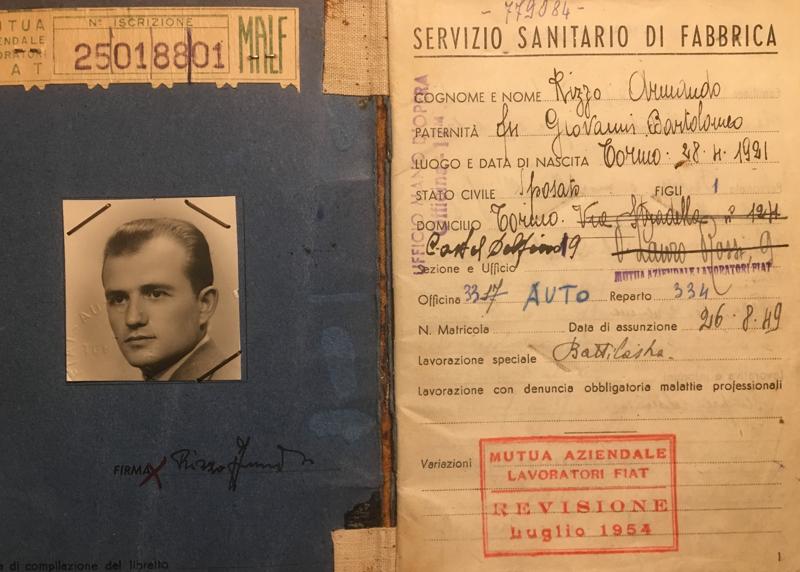 MUTUA
AZIENDALE
LAVORATORI
FIAT
N° ISCRIZIONE
25018801
MALF
FIRMA Rizzo
a di compilazione del libretto
- 779084 -
SERVIZIO SANITARIO DI FABBRICA
COGNOME E NOME Rizzo Armando
PATERNITÀ fu Giovanni Bartolomeo
LUOGO E DATA DI NASCITA Torino. 28.4.1921
STATO CIVILE Sposato FIGLI 1
DOMICILIO Torino. Via Stradella, n° 124
Castel Delfino 19 V. Lauro Rossi, 9
Sezione e Ufficio
MUTUA AZIENDALE LAVORATORI FIAT
Officina 3317 AUTO Reparto 334
N. Matricola Data di assunzione 26.8.49
Lavorazione speciale Battilastra.
Lavorazione con denuncia obbligatoria malattie professionali
Variazioni
MUTUA AZIENDALE
LAVORATORI FIAT
REVISIONE
Luglio 1954
UFFICIO MANO D'OPERA
Officina
1